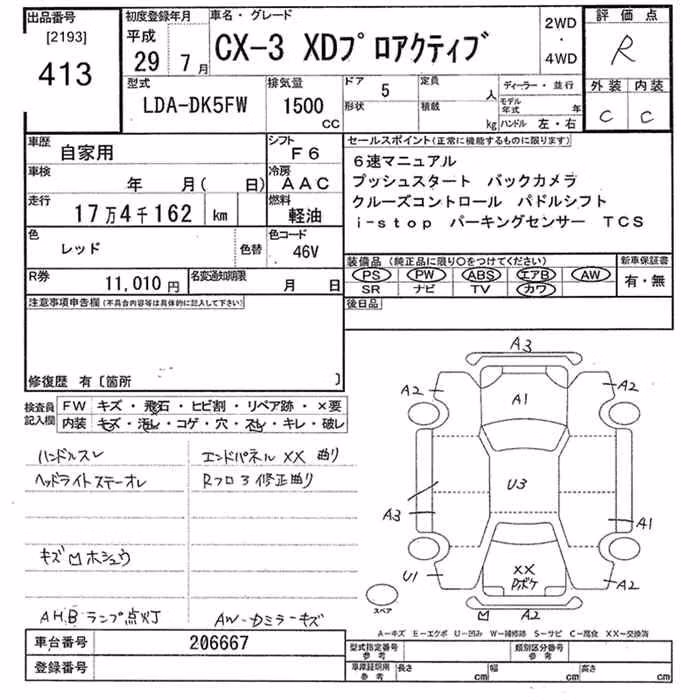 出品番号 初度登録年月 車名・グレード 2WD・4WD 評価点
[2193] 平成 29 7月 CX-3 XDプロアクティブ R
413
型式 排気量 ドア 5 定員 人 ディーラー・並行 外装 内装
LDA-DK5FW 1500 CC 形状 積載 kg モデル年式 年 C C
ハンドル 左・右
車歴 自家用 シフト F6 セールスポイント(正常に機能するものに限ります)
車検 年 月( 日) 冷房 AAC
6速マニュアル
プッシュスタート バックカメラ
走行 17万4千162 km 燃料 軽油
クルーズコントロール パドルシフト
i-stop パーキングセンサー TCS
色 レッド 色替 色コード 46V
装備品(純正品に限り○をつけてください) 新車保証書
R券 11,010円 名変通知期限 月 日
PS PW ABS エアB AW 有・無
SR ナビ TV カワ
注意事項申告欄(不具合内容等は具体的に記入して下さい) 後日品
修復歴 有〔箇所 〕
検査員記入欄 FW キズ・飛石・ヒビ割・リペア跡・×要
内装 キズ・汚れ・コゲ・穴・スレ・キレ・破レ
ハンドルスレ エンドパネル XX 曲り
ヘッドライトステーオレ Rフロア修正曲り
キズ M ホシュウ
AHBランプ点灯 AW・カミラーキズ
A3
A2 A1 A2
U3
A3 A1
U1 XX A2
Dボケ
スペア A2
A-キズ E-エクボ U-凹み W-補修跡 S-サビ C-腐食 XX-交換済
車台番号 206667 型式指定番号 参考 類別区分番号 参考
登録番号 車庫証明用 参考 長さ cm 幅 cm 高さ cm